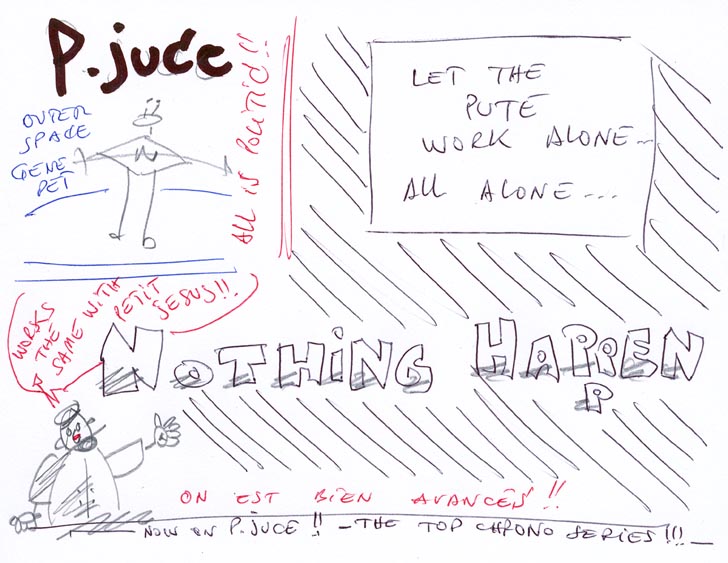 P. juce
OUTER
SPACE
GENE
PET
ALL IS POLITIC!!
LET THE
PUTE
WORK ALONE...
ALL ALONE...
WORKS
THE
SAME WITH
PETIT
JESUS!!
NOTHING HAPPEN
P
ON EST BIEN AVANCÉS !!
NOW ON P.JUCE !! - THE TOP CHRONO SERIES!!!